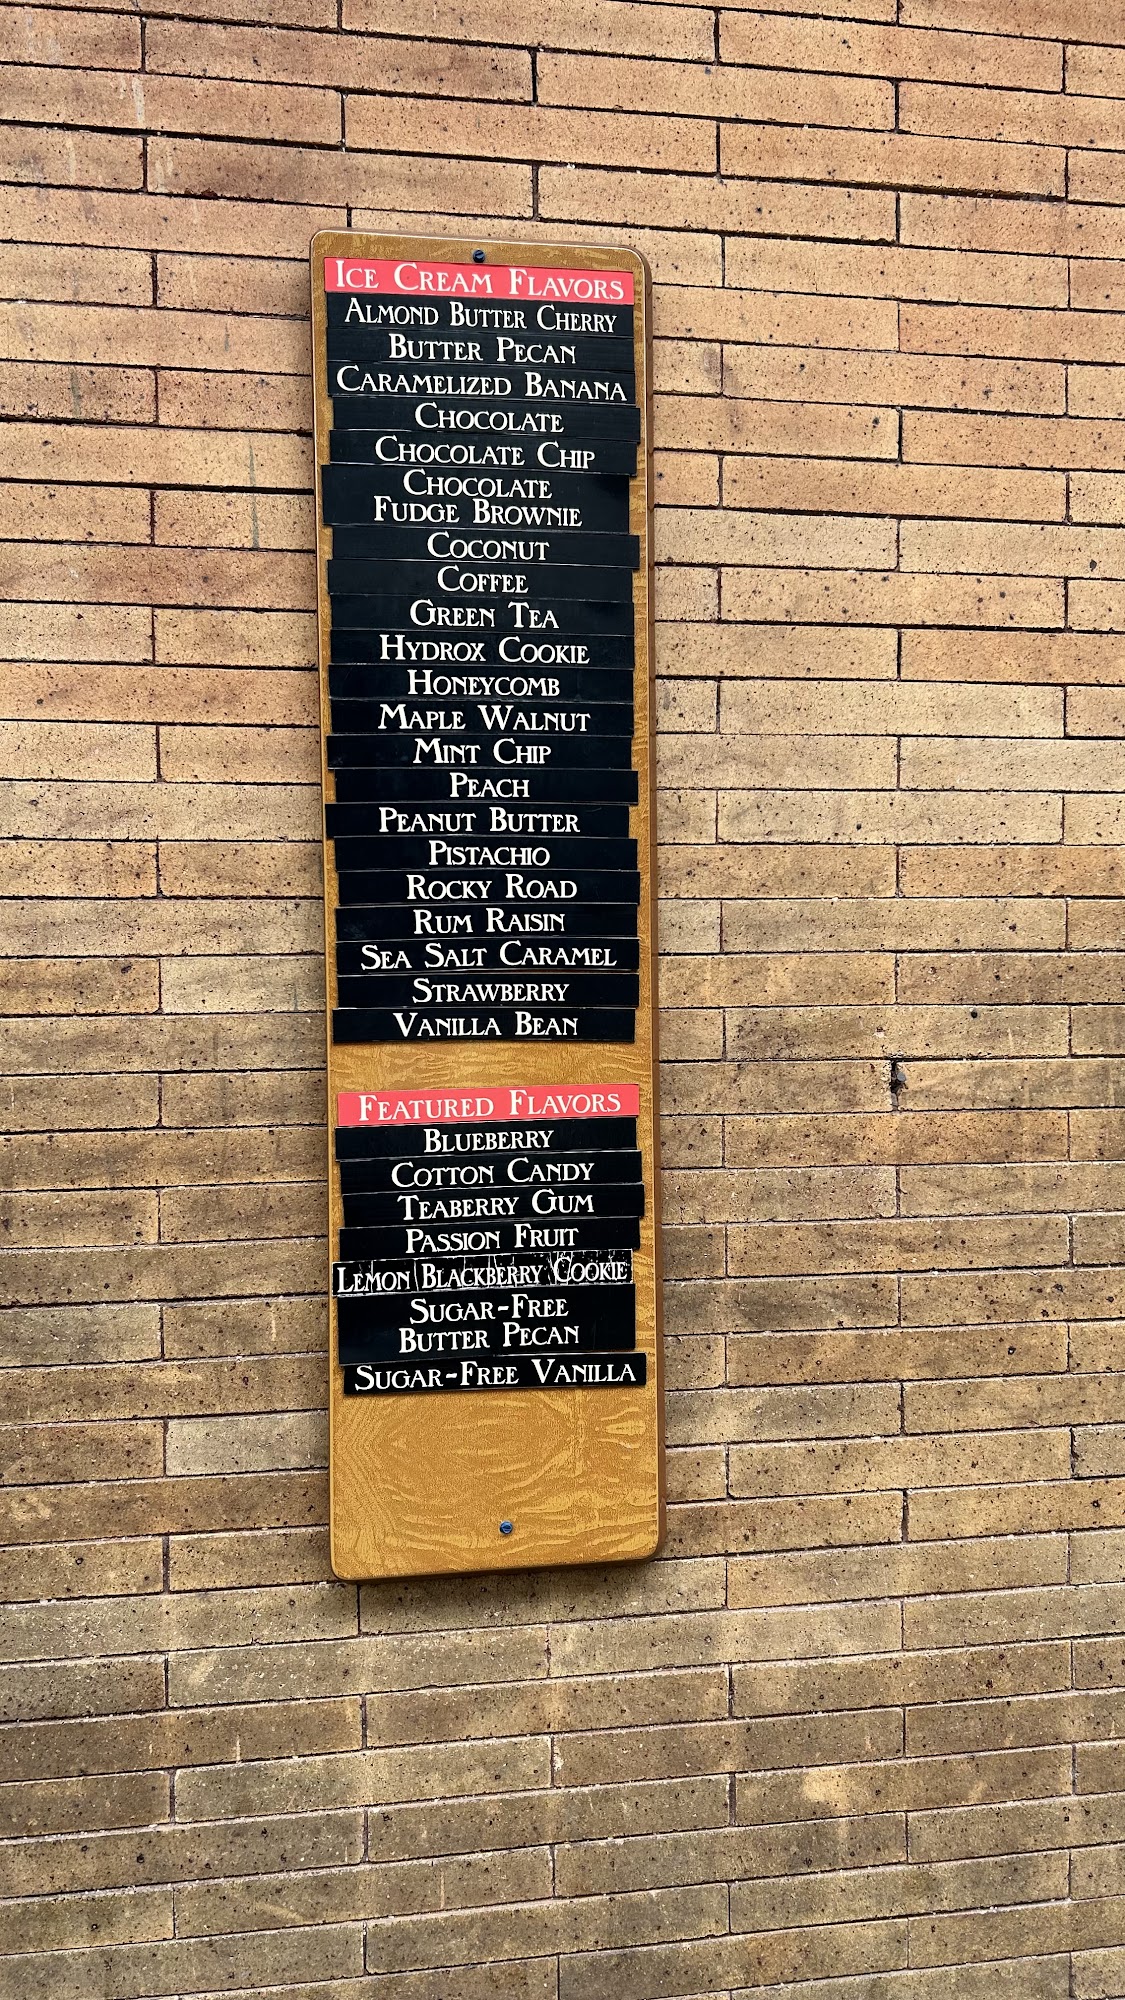 Ice Cream Flavors
Almond Butter Cherry
Butter Pecan
Caramelized Banana
Chocolate
Chocolate Chip
Chocolate
Fudge Brownie
Coconut
Coffee
Green Tea
Hydrox Cookie
Honeycomb
Maple Walnut
Mint Chip
Peach
Peanut Butter
Pistachio
Rocky Road
Rum Raisin
Sea Salt Caramel
Strawberry
Vanilla Bean
Featured Flavors
Blueberry
Cotton Candy
Teaberry Gum
Passion Fruit
Lemon Blackberry Cookie
Sugar-Free
Butter Pecan
Sugar-Free Vanilla